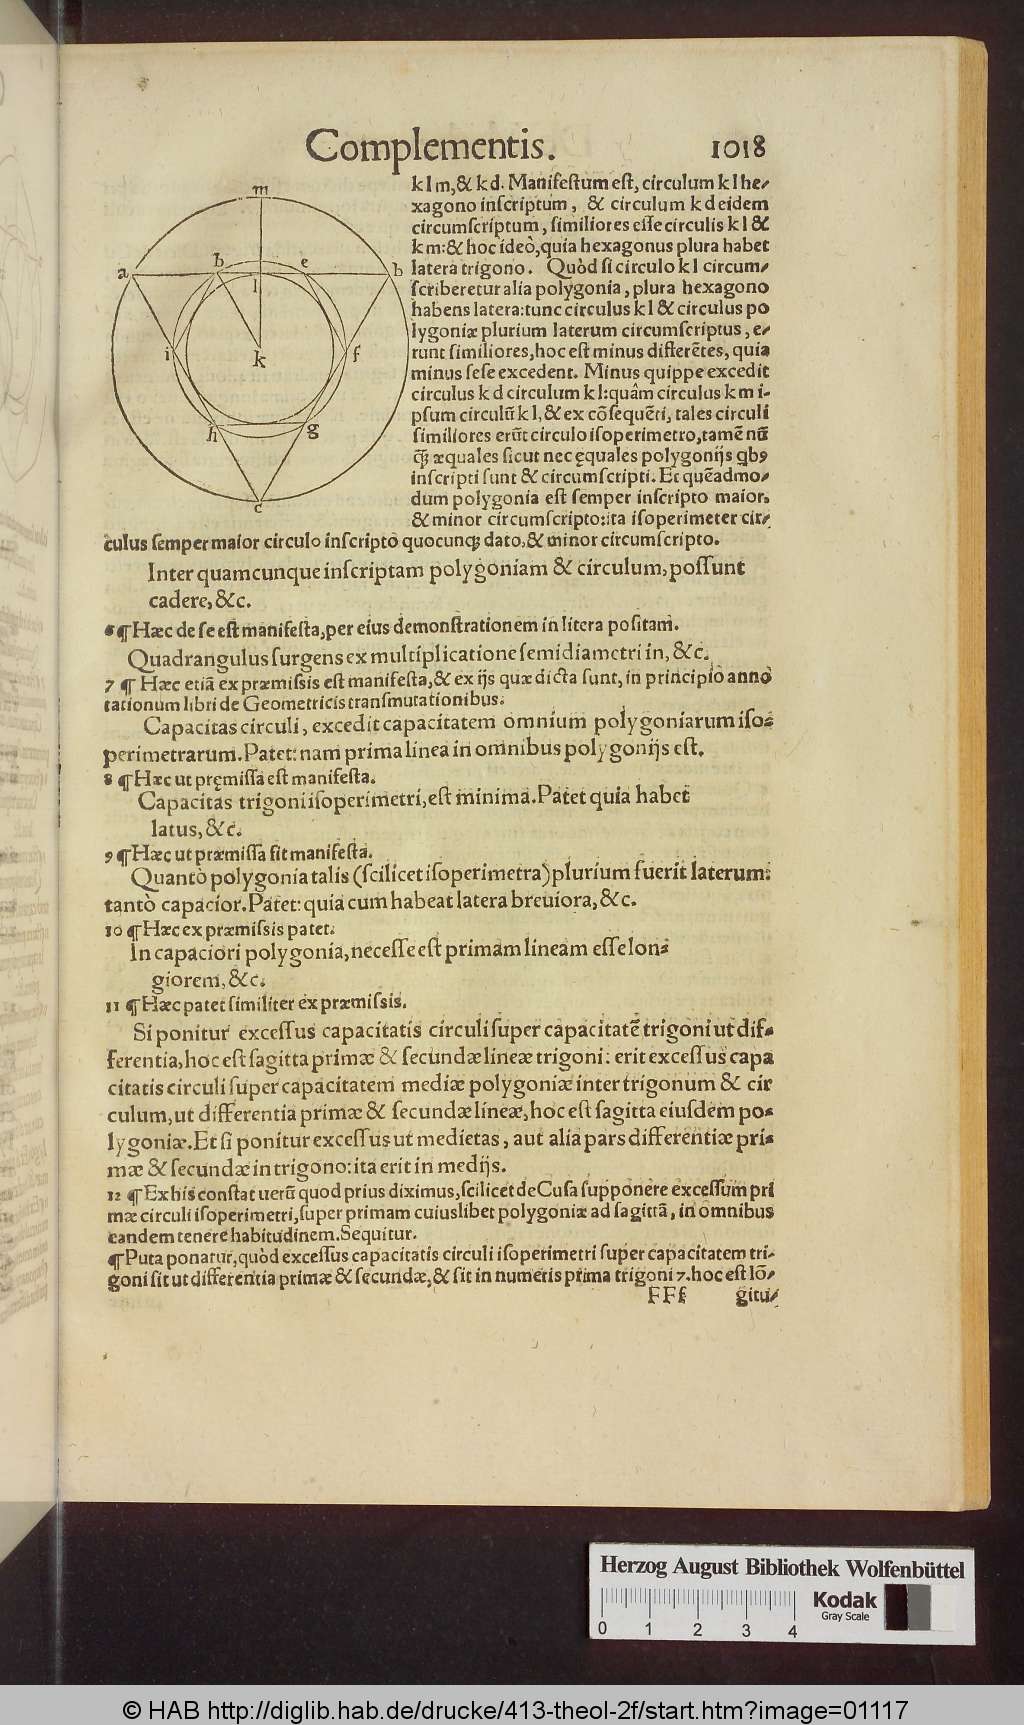 Complementis. 1018
m
a
b
e
b
l
i
k
f
h
g
c
k l m, & k d. Manifestum est, circulum k l he⸗
xagono inscriptum, & circulum k d eidem
circumscriptum, similiores esse circulis k l &
k m: & hoc ideò, quia hexagonus plura habet
latera trigono. Quòd si circulo k l circum⸗
scriberetur alia polygonia, plura hexagono
habens latera: tunc circulus k l & circulus po
lygoniæ plurium laterum circumscriptus, e⸗
runt similiores, hoc est minus differētes, quia
minus sese excedent. Minus quippe excedit
circulus k d circulum k l: quâm circulus k m i⸗
psum circulū k l, & ex cōsequēti, tales circuli
similiores erūt circulo isoperimetro, tamē nū
qꝫ æquales sicut nec ęquales polygonijs qbꝰ
inscripti sunt & circumscripti. Et quēadmo⸗
dum polygonia est semper inscripto maior,
& minor circumscripto: ita isoperimeter cir⸗
culus semper maior circulo inscripto quocunqꝫ dato, & minor circumscripto.
Inter quamcunque inscriptam polygoniam & circulum, possunt
cadere, &c.
6 ¶ Hæc de se est manifesta, per eius demonstrationem in litera positam.
Quadrangulus surgens ex multiplicatione semidiametri in, &c.
7 ¶ Hæc etiā ex præmissis est manifesta, & ex ijs quæ dicta sunt, in principio anno
tationum libri de Geometricis transmutationibus.
Capacitas circuli, excedit capacitatem omnium polygoniarum iso⸗
perimetrarum. Patet: nam prima linea in omnibus polygonijs est.
8 ¶ Hæc ut pręmissa est manifesta.
Capacitas trigoni isoperimetri, est minima. Patet quia habet
latus, &c.
9 ¶ Hæc ut præmissa fit manifesta.
Quantò polygonia talis (scilicet isoperimetra) plurium fuerit laterum:
tantò capacior. Patet: quia cum habeat latera breuiora, &c.
10 ¶ Hæc ex præmissis patet.
In capaciori polygonia, necesse est primam lineam esse lon⸗
giorem, &c.
11 ¶ Hæc patet similiter ex præmissis.
Si ponitur excessus capacitatis circuli super capacitatē trigoni ut dif⸗
ferentia, hoc est sagitta primæ & secundæ lineæ trigoni: erit excessus capa
citatis circuli super capacitatem mediæ polygoniæ inter trigonum & cir
culum, ut differentia primæ & secundæ lineæ, hoc est sagitta eiusdem po⸗
lygoniæ. Et si ponitur excessus ut medietas, aut alia pars differentiæ pri⸗
mæ & secundæ in trigono: ita erit in medijs.
12 ¶ Ex his constat uerū quod prius diximus, scilicet de Cusa supponere excessum pri
mæ circuli isoperimetri, super primam cuiuslibet polygoniæ ad sagittā, in omnibus
eandem tenere habitudinem. Sequitur.
¶ Puta ponatur, quòd excessus capacitatis circuli isoperimetri super capacitatem tri⸗
goni sit ut differentia primæ & secundæ, & sit in numeris prima trigoni 7. hoc est lō⸗
FFf gitu⸗
Herzog August Bibliothek Wolfenbüttel
0 1 2 3 4
Kodak
Gray Scale
© HAB http://diglib.hab.de/drucke/413-theol-2f/start.htm?image=01117